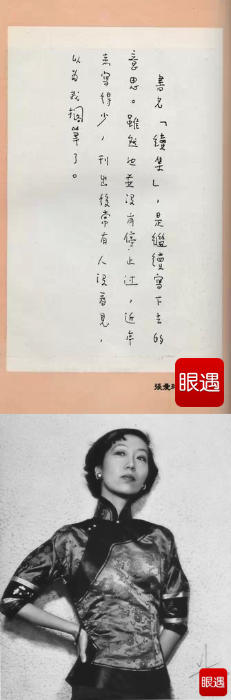 書名「續集」，是繼續寫下去的
意思。雖然也並沒有停止过，近年
來寫得少，刊出後常有人沒看見，
以為我擱筆了。
張愛
眼遇
眼遇